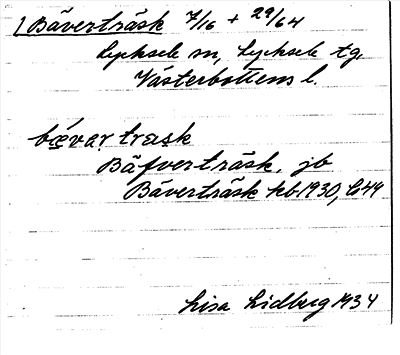 Bäverträsk 7/16 + 29/64
Lycksele sn, Lycksele tg.
Västerbottens l.
bæ̀var træsk
Bäfverträsk, jb
Bäverträsk kb 1930,
Lisa Lidberg 1934